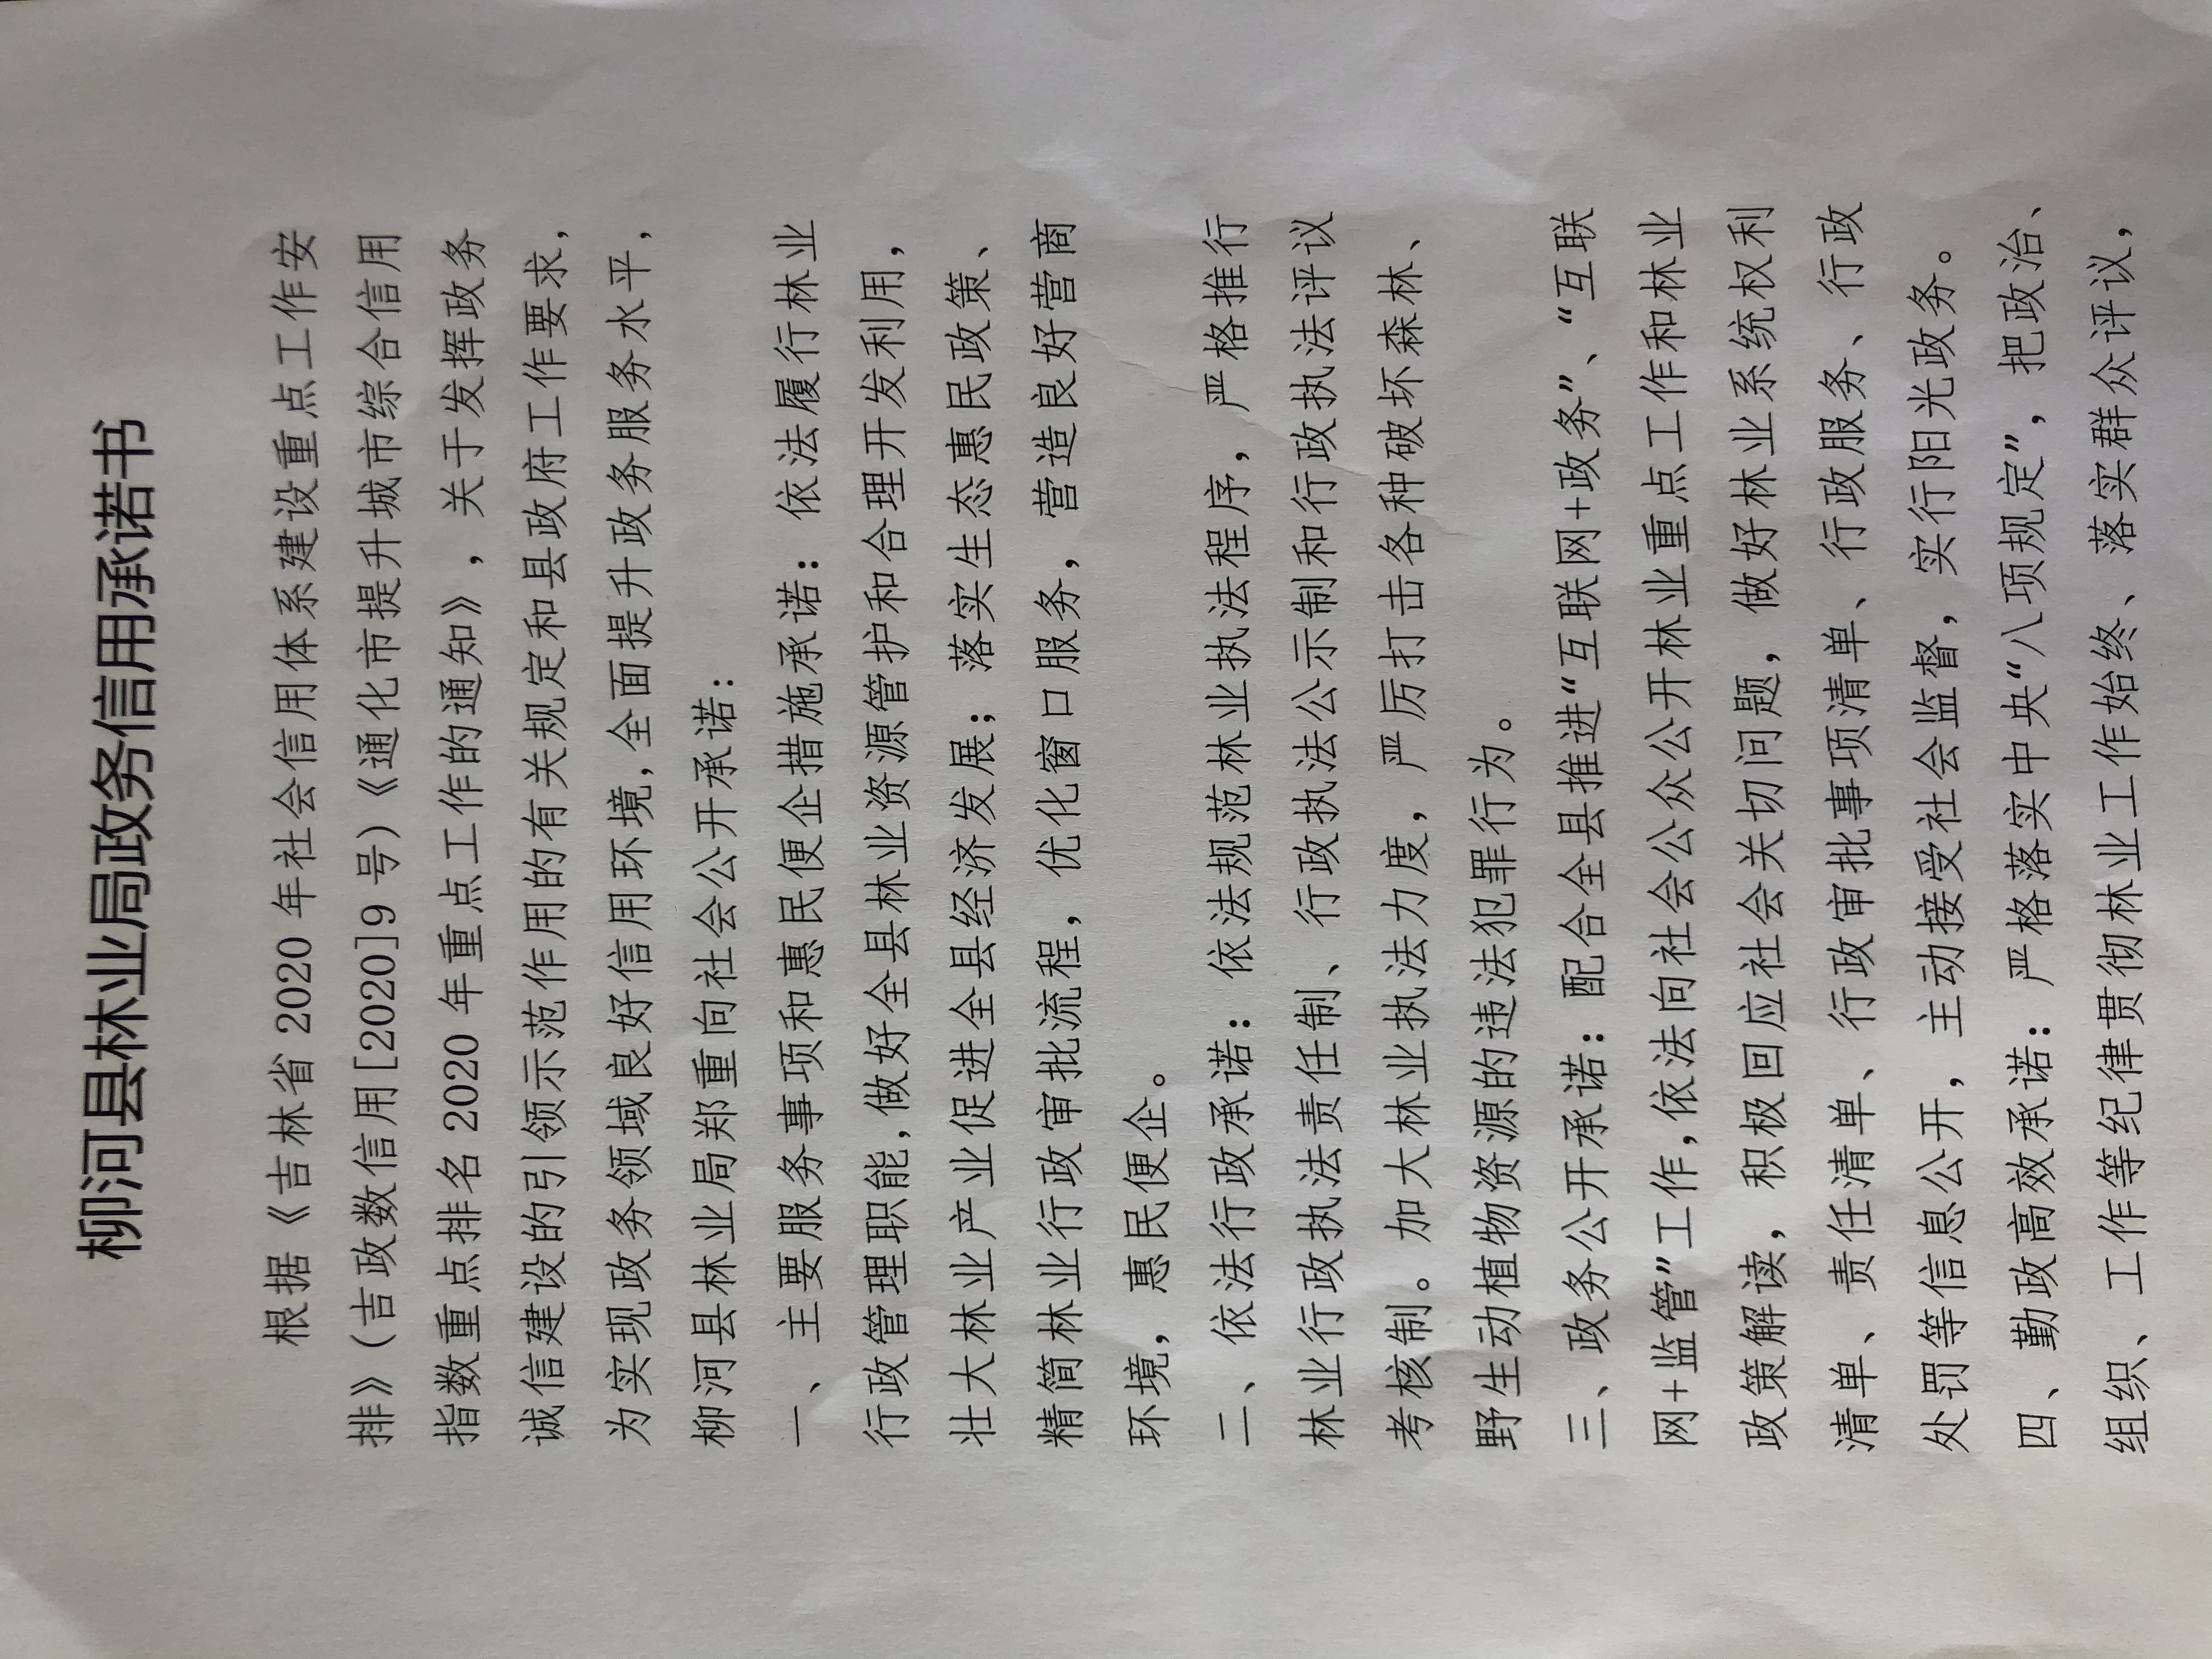 柳河县林业局政务信用承诺书
根据《吉林省 2020 年社会信用体系建设重点工作安
排》（吉政数信用[2020]9 号）《通化市提升城市综合信用
指数重点排名 2020 年重点工作的通知》，关于发挥政务
诚信建设的引领示范作用的有关规定和县政府工作要求，
为实现政务领域良好信用环境，全面提升政务服务水平，
柳河县林业局郑重向社会公开承诺：
一、主要服务事项和惠民便企措施承诺：依法履行林业
行政管理职能，做好全县林业资源管护和合理开发利用，
壮大林业产业促进全县经济发展；落实生态惠民政策、
精简林业行政审批流程，优化窗口服务，营造良好营商
环境，惠民便企。
二、依法行政承诺：依法规范林业执法程序，严格推行
林业行政执法责任制、行政执法公示制和行政执法评议
考核制。加大林业执法力度，严厉打击各种破坏森林、
野生动植物资源的违法犯罪行为。
三、政务公开承诺：配合全县推进“互联网+政务”、“互联
网+监管”工作，依法向社会公众公开林业重点工作和林业
政策解读，积极回应社会关切问题，做好林业系统权利
清单、责任清单、行政审批事项清单、行政服务、行政
处罚等信息公开，主动接受社会监督，实行阳光政务。
四、勤政高效承诺：严格落实中央“八项规定”，把政治、
组织、工作等纪律贯彻林业工作始终、落实群众评议，